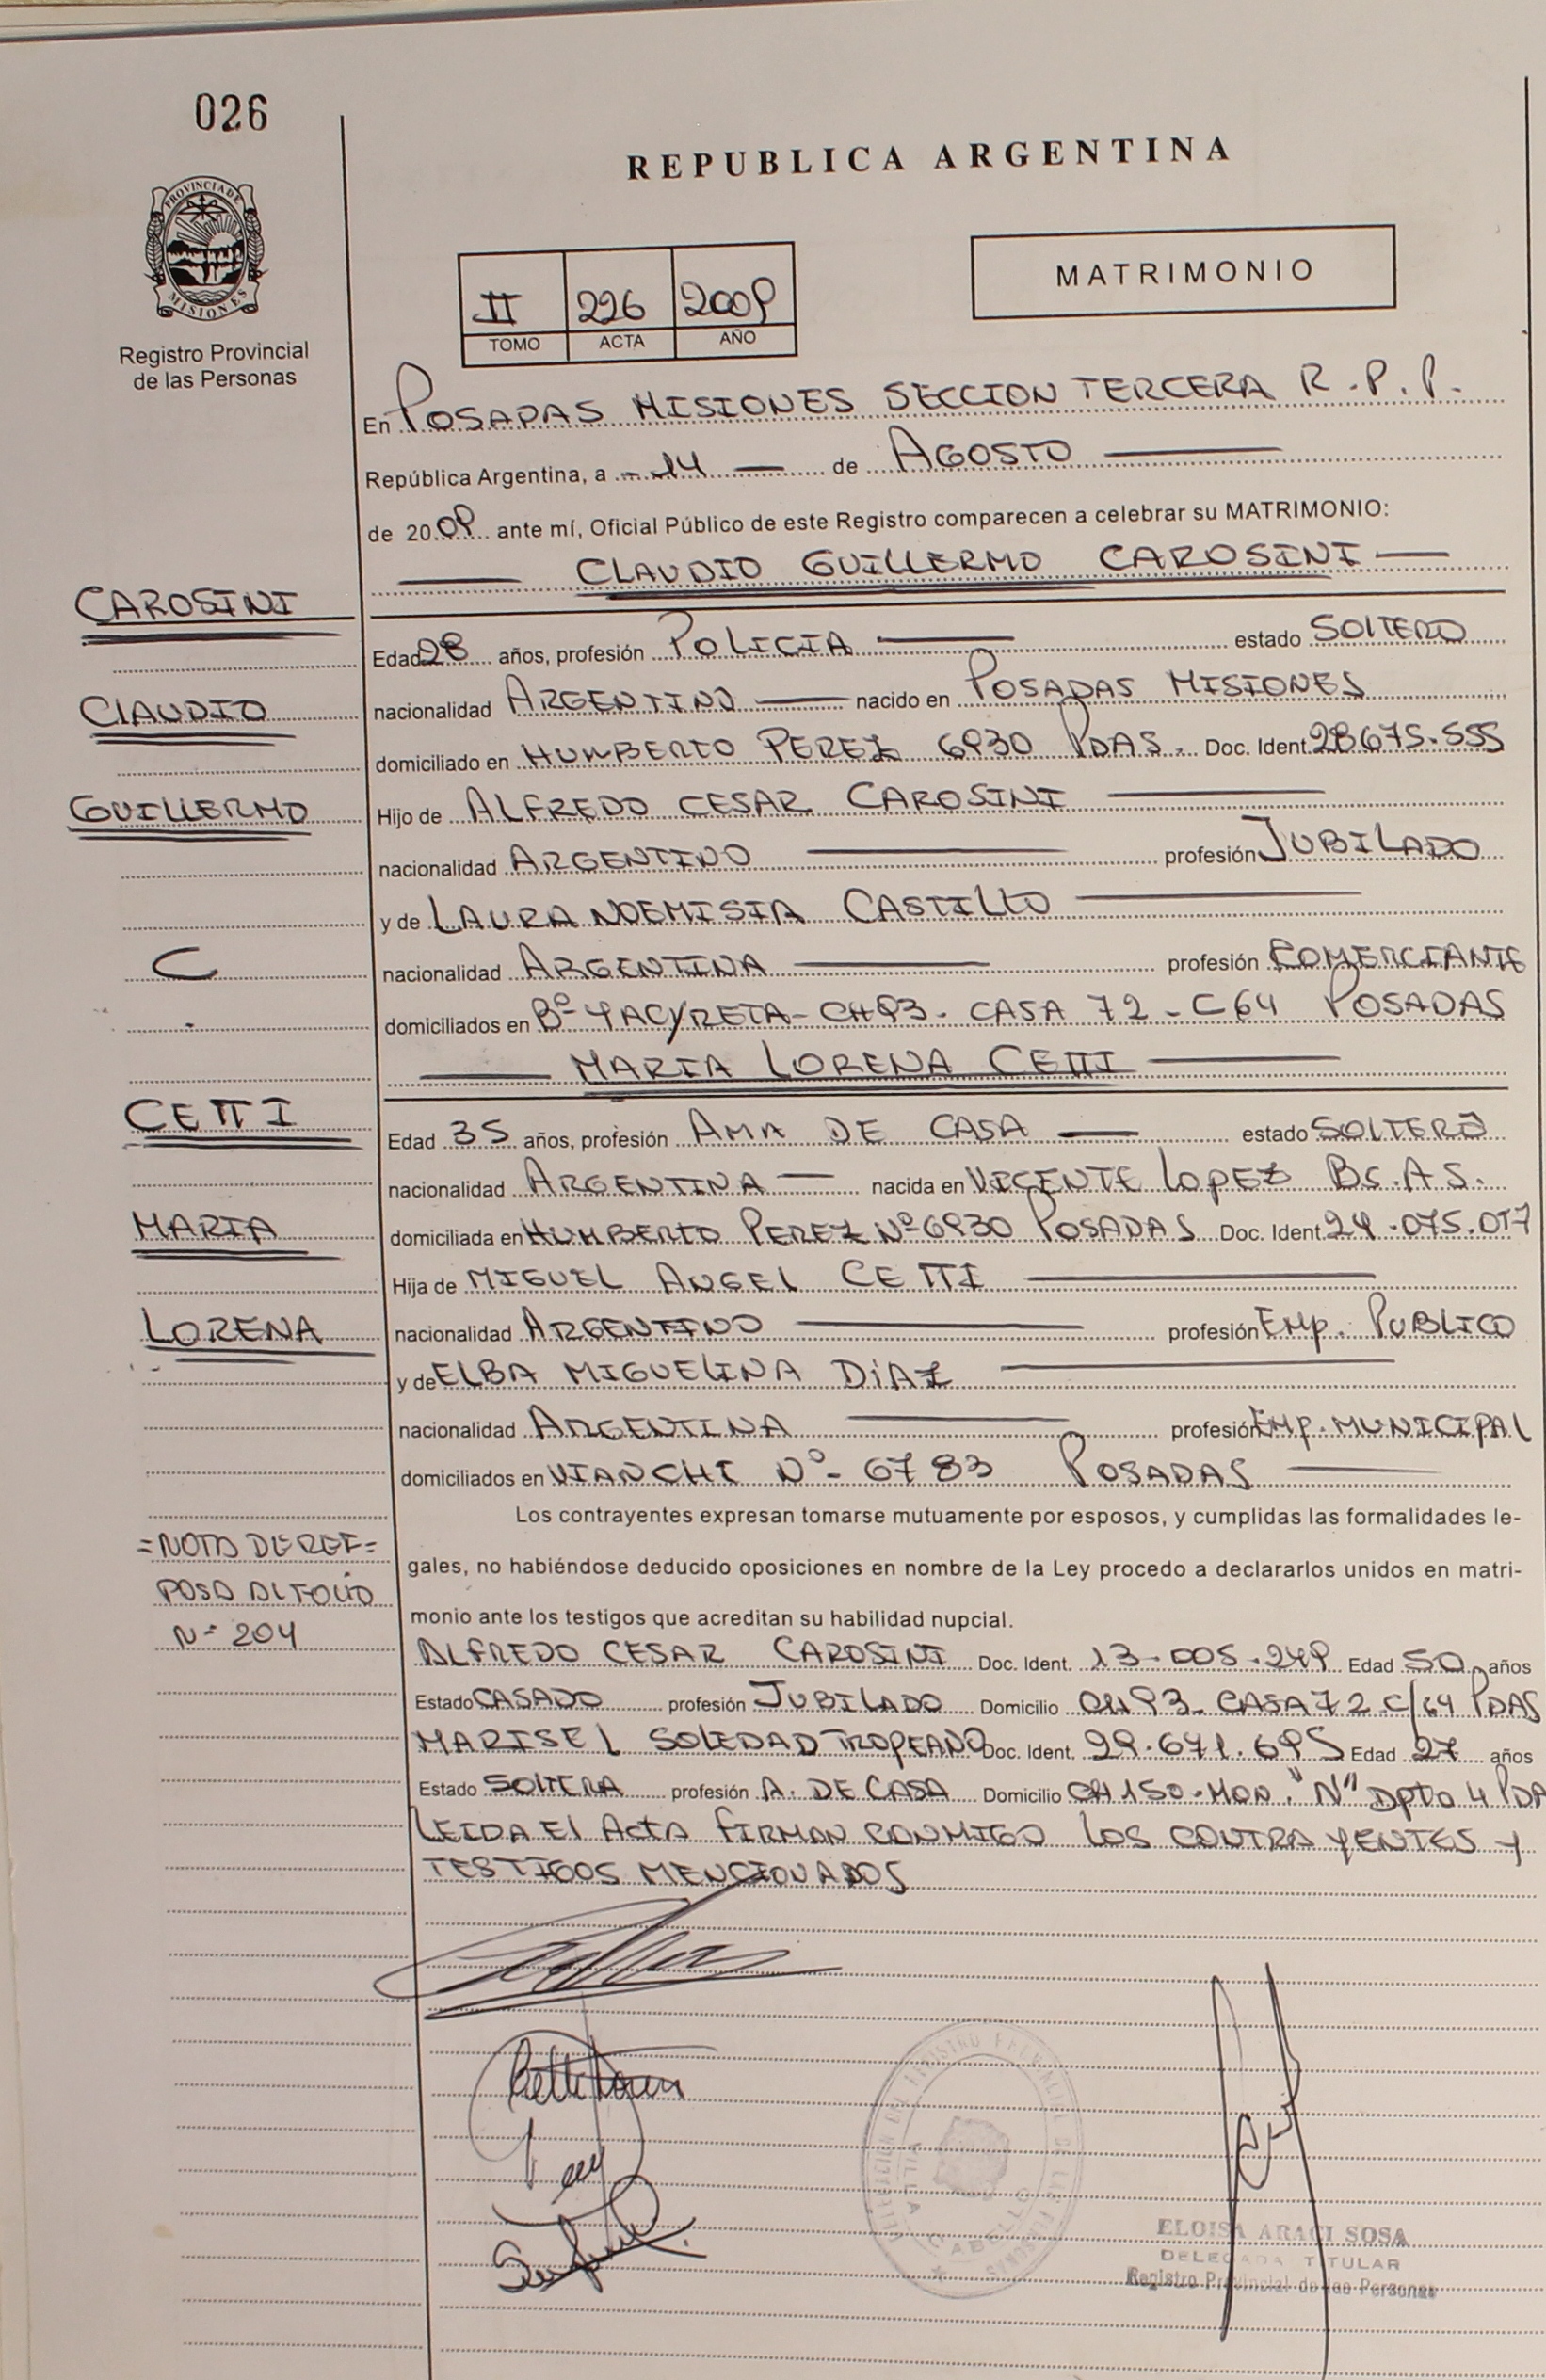 026
REPUBLICA ARGENTINA
PROVINCIA DE
MISIONES
Registro Provincial
de las Personas
II 226 2009
TOMO ACTA AÑO
MATRIMONIO
En POSADAS MISIONES SECCION TERCERA R.P.P.
República Argentina, a 14 de AGOSTO
de 2009 ante mí, Oficial Público de este Registro comparecen a celebrar su MATRIMONIO:
CLAUDIO GUILLERMO CAROSINI
CAROSINI
Edad 28 años, profesión POLICIA estado SOLTERO
CLAUDIO
nacionalidad ARGENTINO nacido en POSADAS MISIONES
domiciliado en HUMBERTO PEREZ 6930 PDAS. Doc. Ident. 28675.555
GUILLERMO
Hijo de ALFREDO CESAR CAROSINI
nacionalidad ARGENTINO profesión JUBILADO
y de LAURA NOEMISIA CASTILLO
C
nacionalidad ARGENTINA profesión COMERCIANTE
domiciliados en Bº YACYRETA- CH93- CASA 72 - C64 POSADAS
MARIA LORENA CETTI
CETTI
Edad 35 años, profesión AMA DE CASA estado SOLTERA
nacionalidad ARGENTINA nacida en VICENTE LOPEZ Bs.A.S.
MARIA
domiciliada en HUMBERTO PEREZ Nº 6930 POSADAS Doc. Ident. 24.075.017
Hija de MIGUEL ANGEL CETTI
LORENA
nacionalidad ARGENTINO profesión EMP. PUBLICO
y de ELBA MIGUELINA DIAZ
nacionalidad ARGENTINA profesión EMP. MUNICIPAL
domiciliados en VIANCHI Nº- 6783 POSADAS
Los contrayentes expresan tomarse mutuamente por esposos, y cumplidas las formalidades le-
=NOTA DE REF=
gales, no habiéndose deducido oposiciones en nombre de la Ley procedo a declararlos unidos en matri-
PASA AL FOLIO
monio ante los testigos que acreditan su habilidad nupcial.
Nº 204
ALFREDO CESAR CAROSINI Doc. Ident. 13.005.249 Edad 50 años
Estado CASADO profesión JUBILADO Domicilio CH93- CASA 72 C/64 PDAS
MARISEL SOLEDAD TROPEANO Doc. Ident. 29.641.695 Edad 27 años
Estado SOLTERA profesión A. DE CASA Domicilio CH 150-MON. "N" DPTO 4 PDA
LEIDA EL ACTA FIRMAN CONMIGO LOS CONTRAYENTES Y
TESTIGOS MENCIONADOS
DELEGACION DEL REGISTRO PROVINCIAL DE LAS PERSONAS
VILLA CABELLO
ELOISA ARACI SOSA
DELEGADA TITULAR
Registro Provincial de las Personas